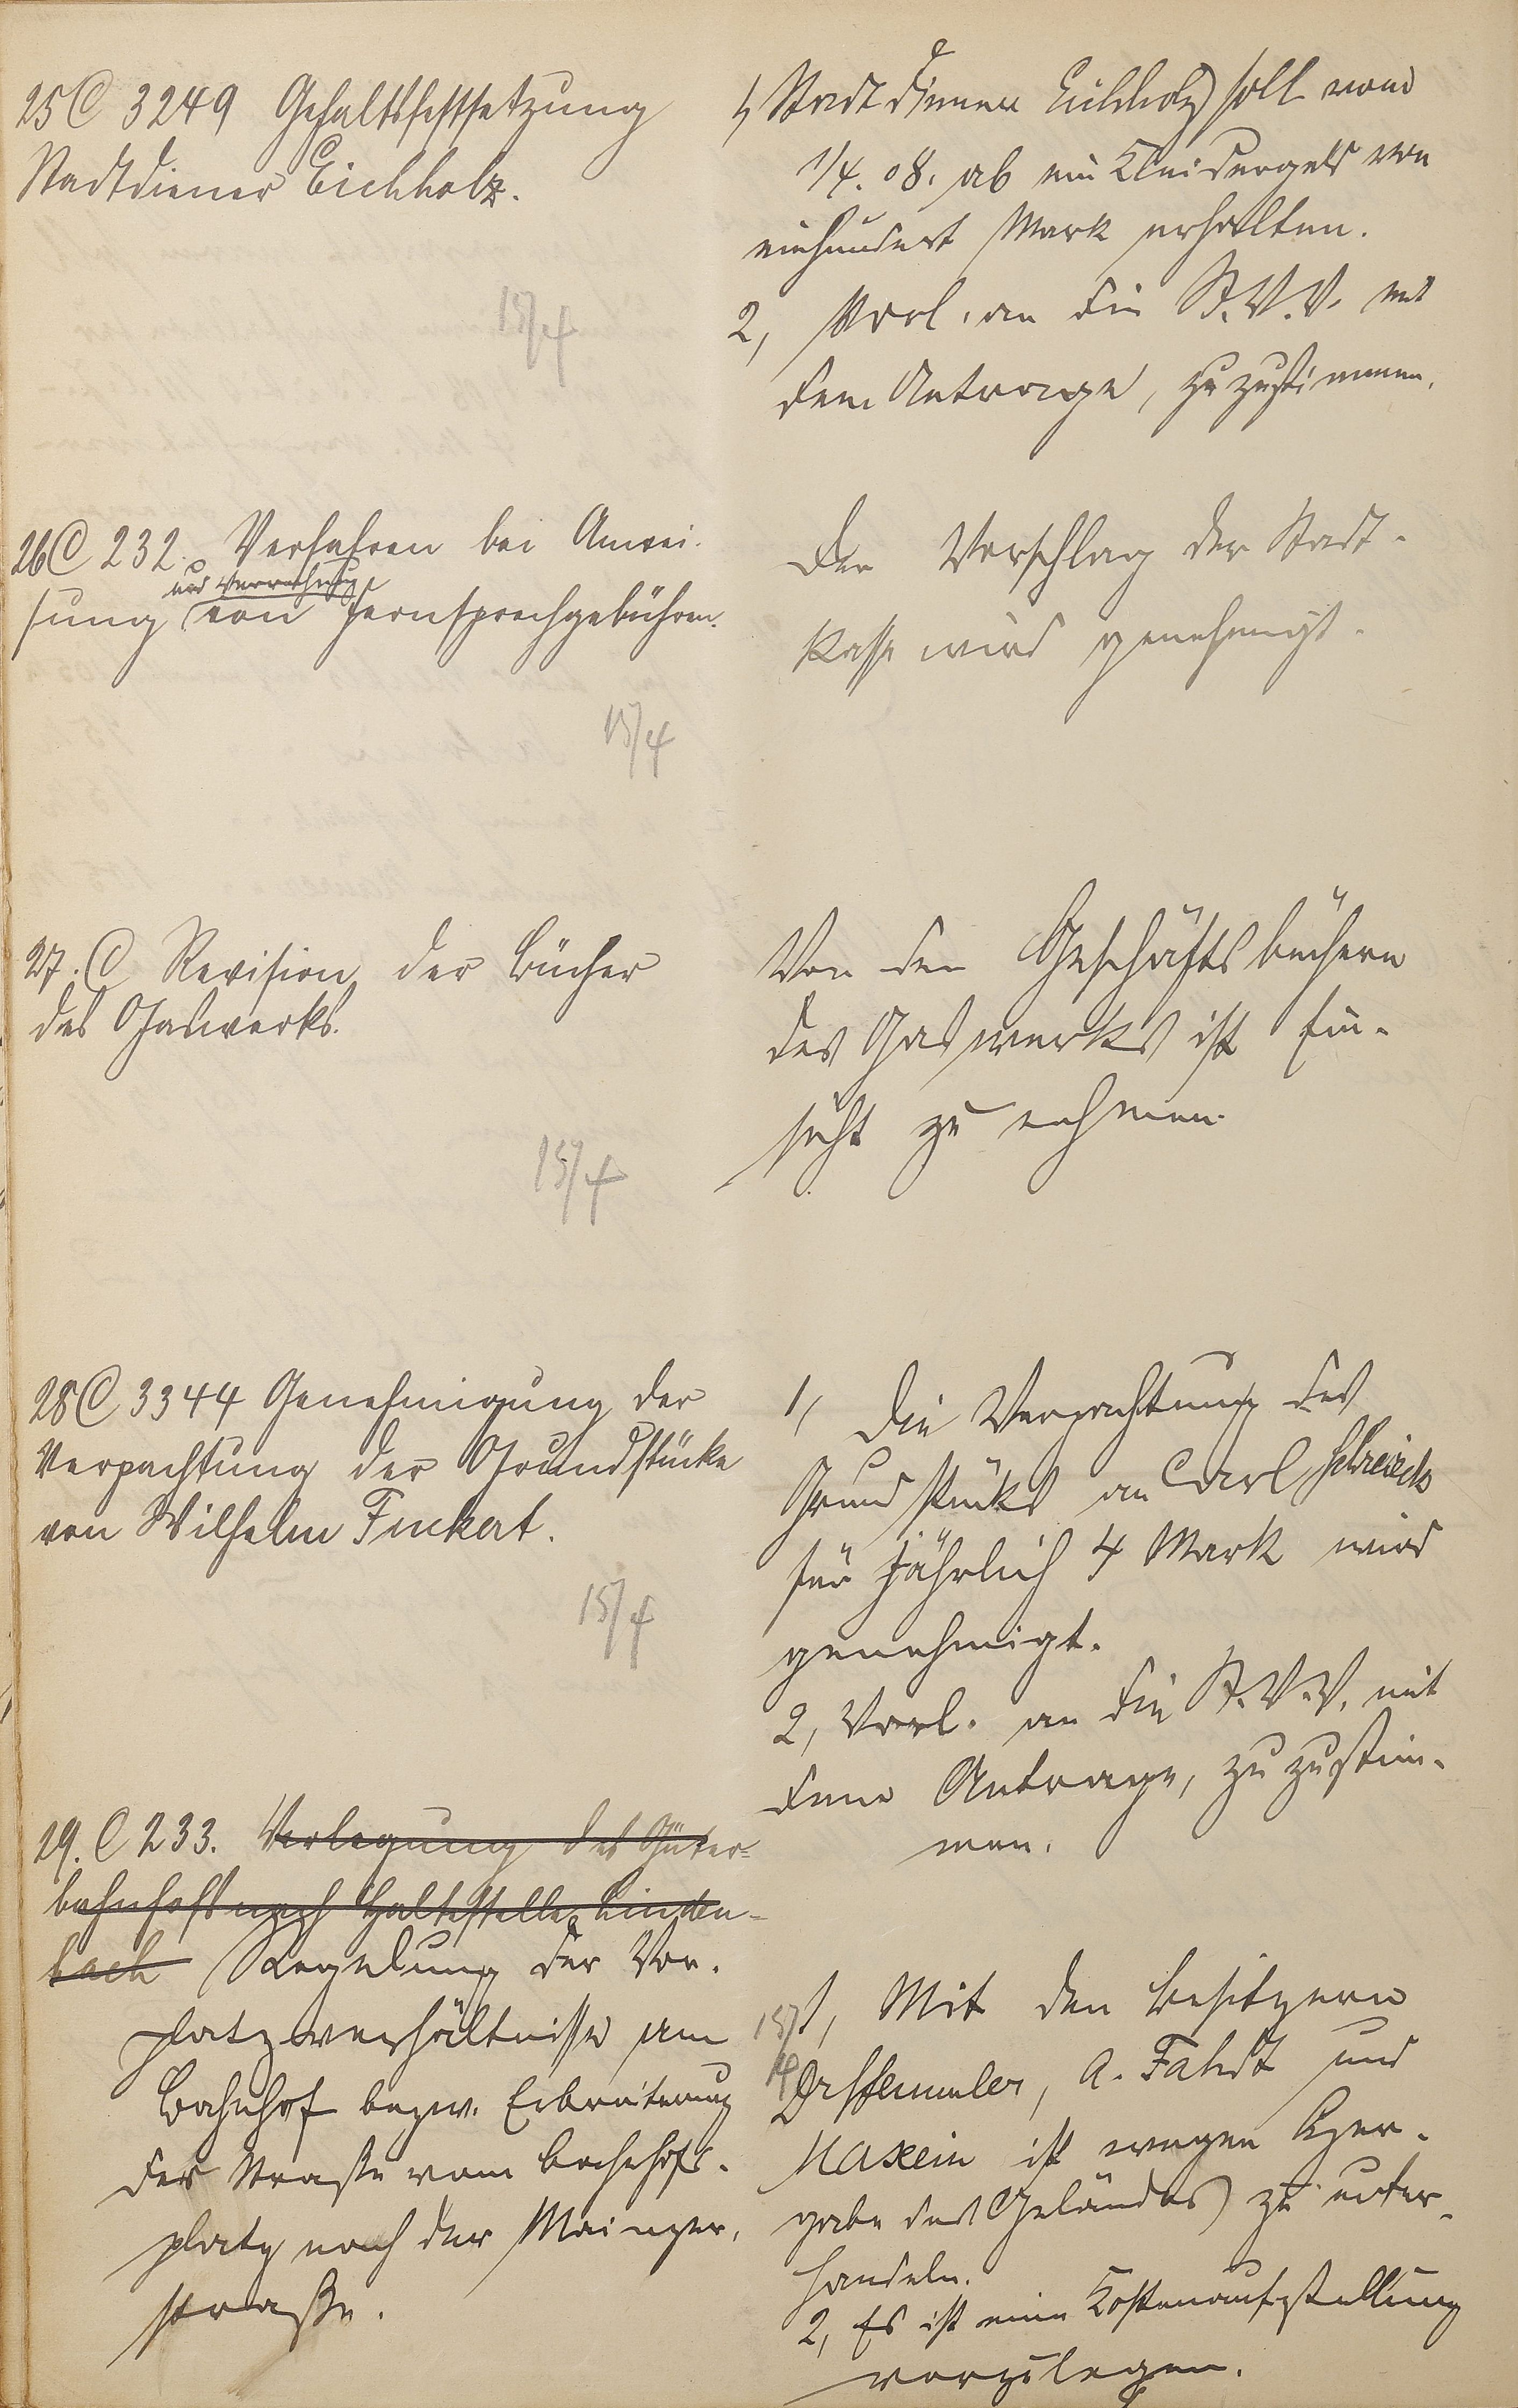 25 C 3249 Gehaltsfestsetzung
Stadtdiener Eichholz.
15/4
1, Stadtdiener Eichholz soll vom
1/4. 08. ab ein Kleidergeld von
einhundert Mark erhalten.
2, Vorl. an die St.V.V. mit
dem Antrage, zuzustimmen.
26 C 232. Verfahren bei Anwei-
und Verrechnung
sung von Fernsprechgebühren.
15/4
Der Vorschlag der Stadt-
kasse wird genehmigt.
27. C Revision der Bücher
des Gaswerks.
15/4
Von den Geschäftsbüchern
des Gaswerks ist Ein-
sicht zu nehmen.
28 C 3344 Genehmigung der
Verpachtung der Grundstücke
von Wilhelm Finkert.
15/4
1, Die Verpachtung des
Grundstücks an Carl
für jährlich 4 Mark wird
genehmigt.
2, Vorl. an die St.V.V. mit
dem Antrage, zuzustim-
men.
29. C 233. Verlegung des Güter-
bahnhofs nach Haltestelle Linden-
bach Regelung der Vor-
platzverhältnisse am
Bahnhof bezw. Erbreiterung
der Straße vom Bahnhofs-
platz nach der Mainzer-
straße.
15/4
1, Mit den Besitzern
A. Fahdt und
Maxein ist wegen Herr-
gabe des Geländes zu unter-
handeln.
2, Es ist eine Kostenaufstellung
vorzulegen.